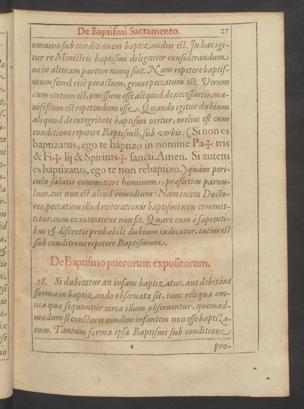 De Baptismi Sacramento. 27
omnino sub conditionem baptizandus est. In hac igi-
tur re Ministris baptismi diligenter considerandum
ne in alteram partem nimis sint. Nam repetere baptis-
mum semel rite peractum, graue peccatum est. Verum
cum certum est, omissum esse aliquid de necessariis, ma-
nifestum est repetendum esse. Quando igitur dubium
aliquod de integritate baptismi oritur, melius est cum
conditione repetere Baptismũ, sub verbis: (Si non es
baptizatus, ego te baptizo in nomine Pa✠tris
& Fi✠lij & Spiritus✠ sancti. Amen. Si autem
es baptizatus, ego te non rebaptizo.) quàm peri-
culo salutis committere hominem, præsertim paruu-
lum, cui non est aliud remedium: Nam iuxta Docto-
res, peccatum illud reiterationis baptismi non commit-
titur, cum ex intentione non fit. Quare cum à sapienti-
bus & discretis probabile dubium iudicatur, tutius est
sub conditione repetere Baptismum.
De Baptismo puerorum expositorum.
18. Si dubitatur an infans baptizatur, aut debitāe
forma in baptizando obseruata sit, tunc reliqua om-
nia quæ sequuntur circa illum obseruentur, quemad-
modum si constaret eundem infantem non esse baptiza-
tum. Tantum forma ipsa Baptismi sub conditione
pro-